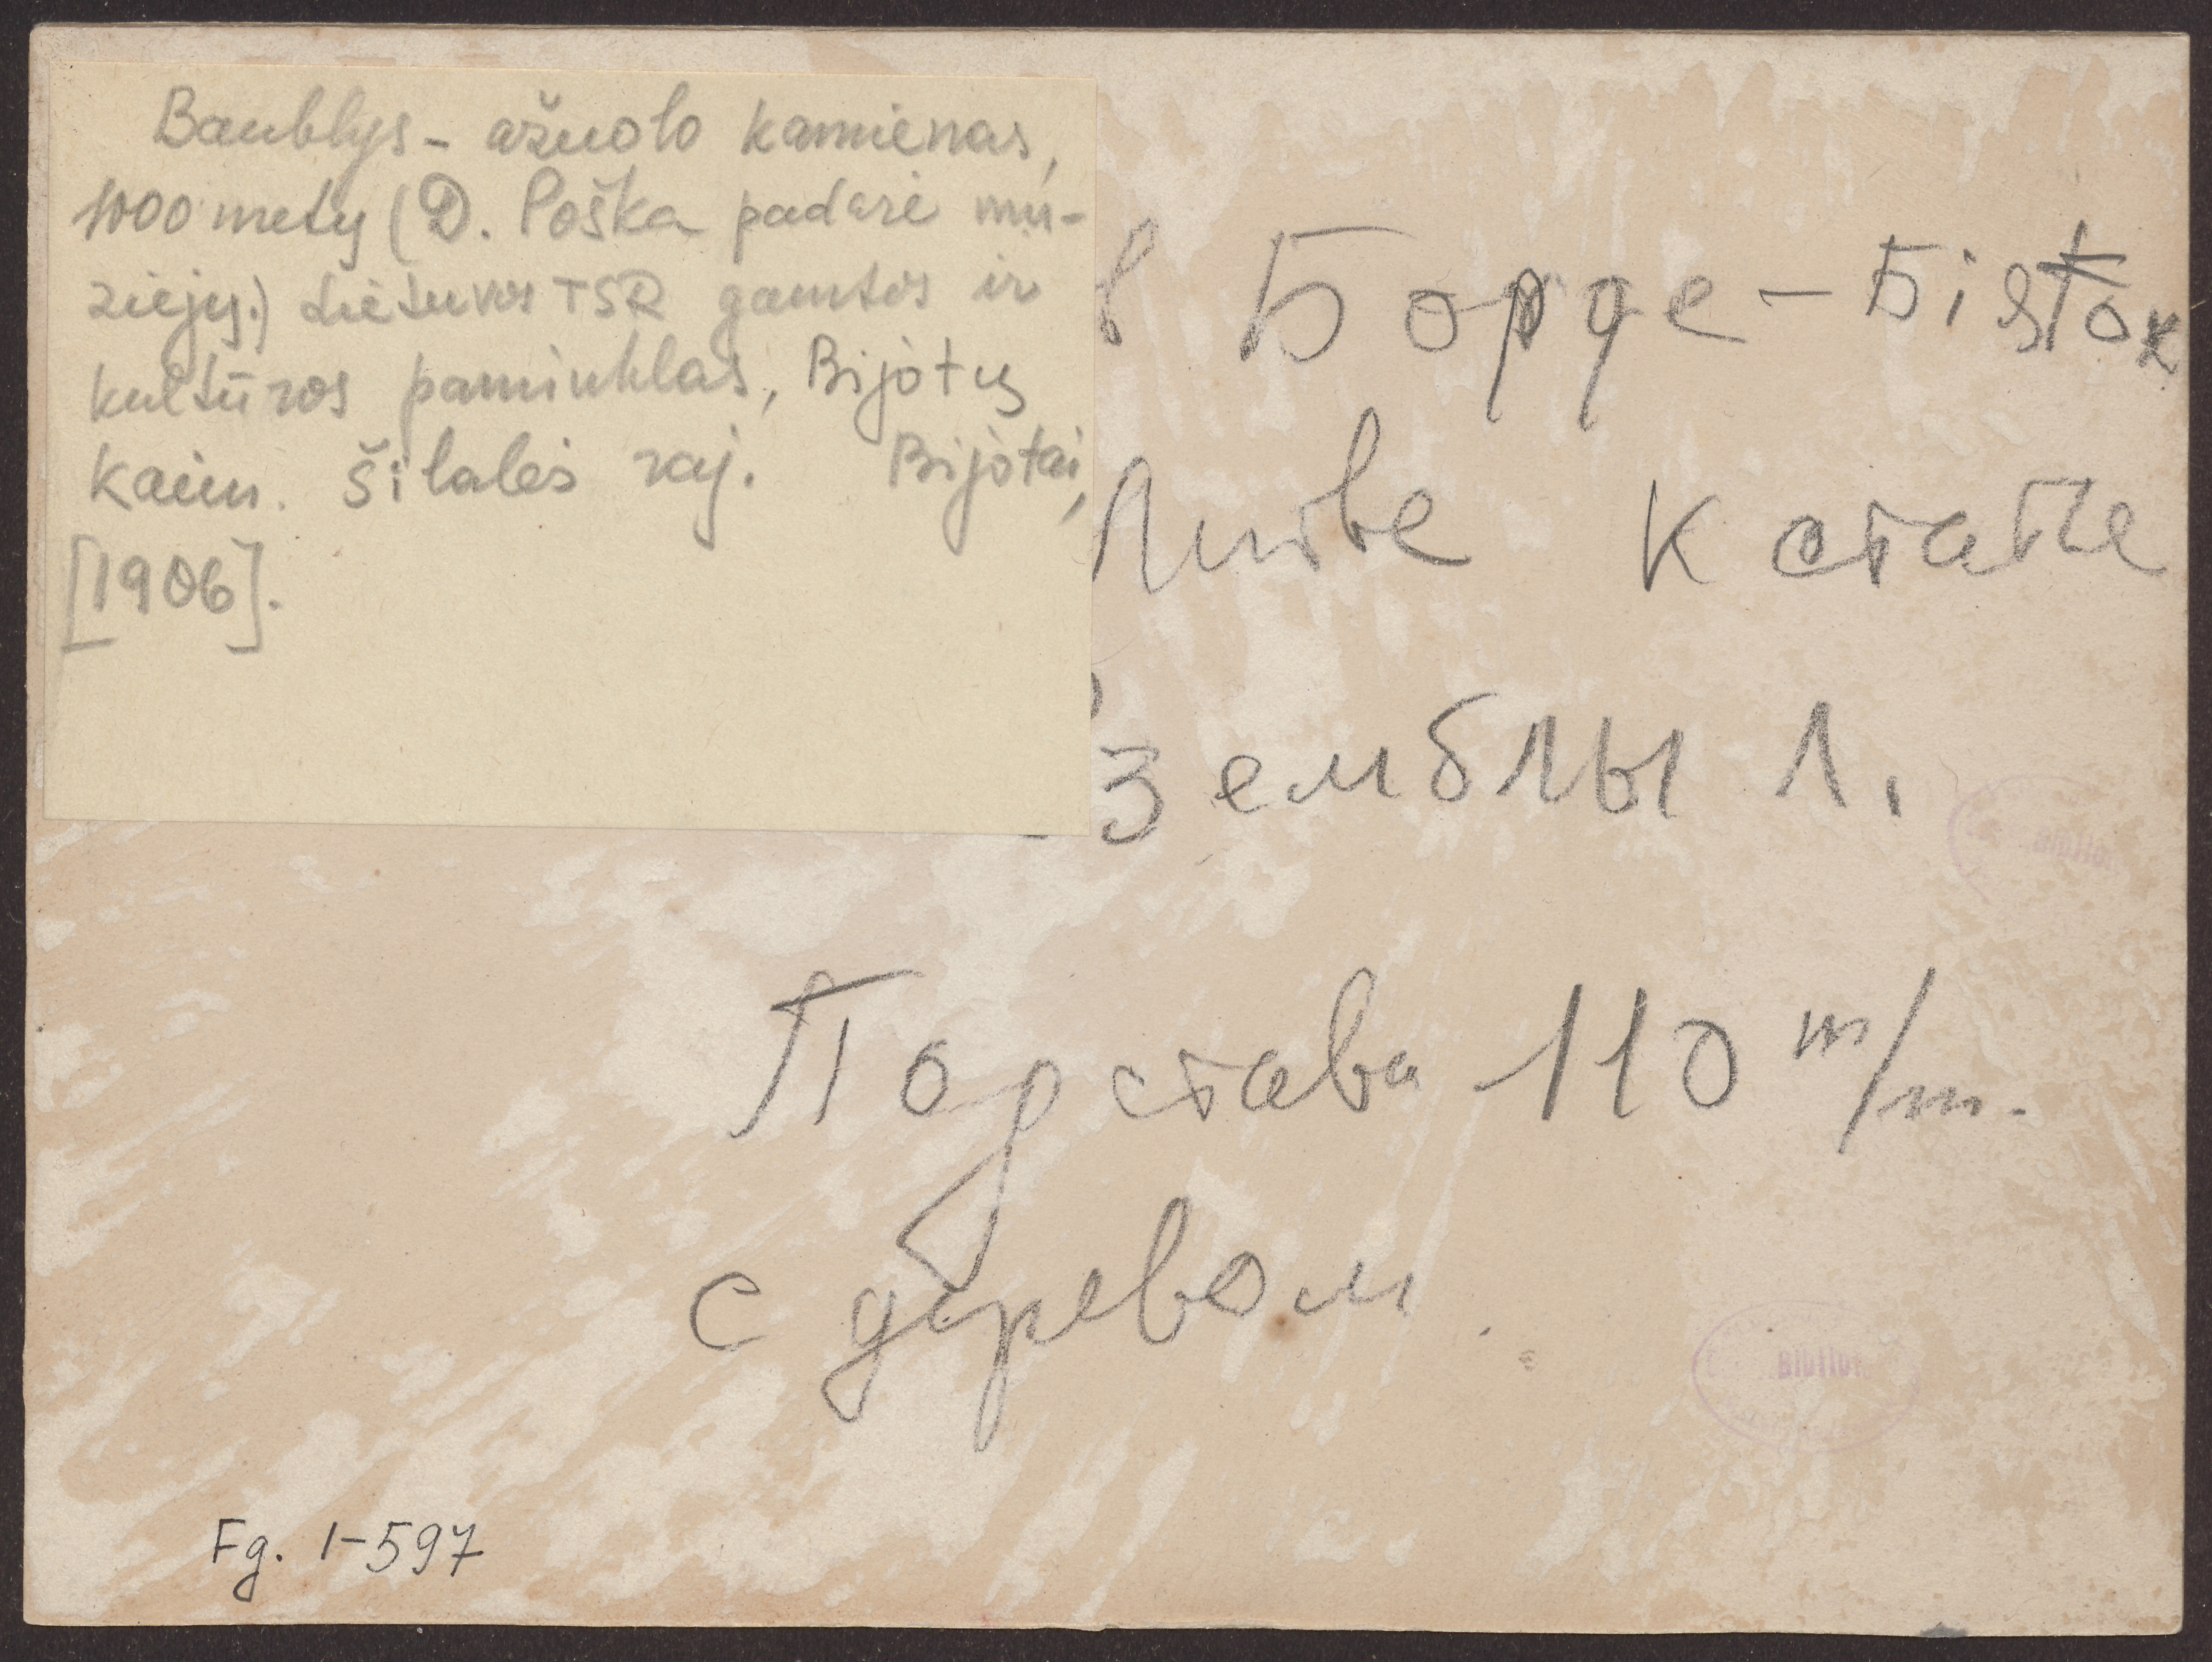 Baublys - ąžuolo kamienas,
1000 metų (D. Poška padarė mu-
ziejų.) Lietuvos TSR gamtos ir
kultūros paminklas, Bijotų
kaim. Šilalės raj. Bijotai,
[1906].
в Борде-Бісток
Литве к статье
Земблы Л.
Подстава 110 m/m.
с деревом.
Fg. 1-597